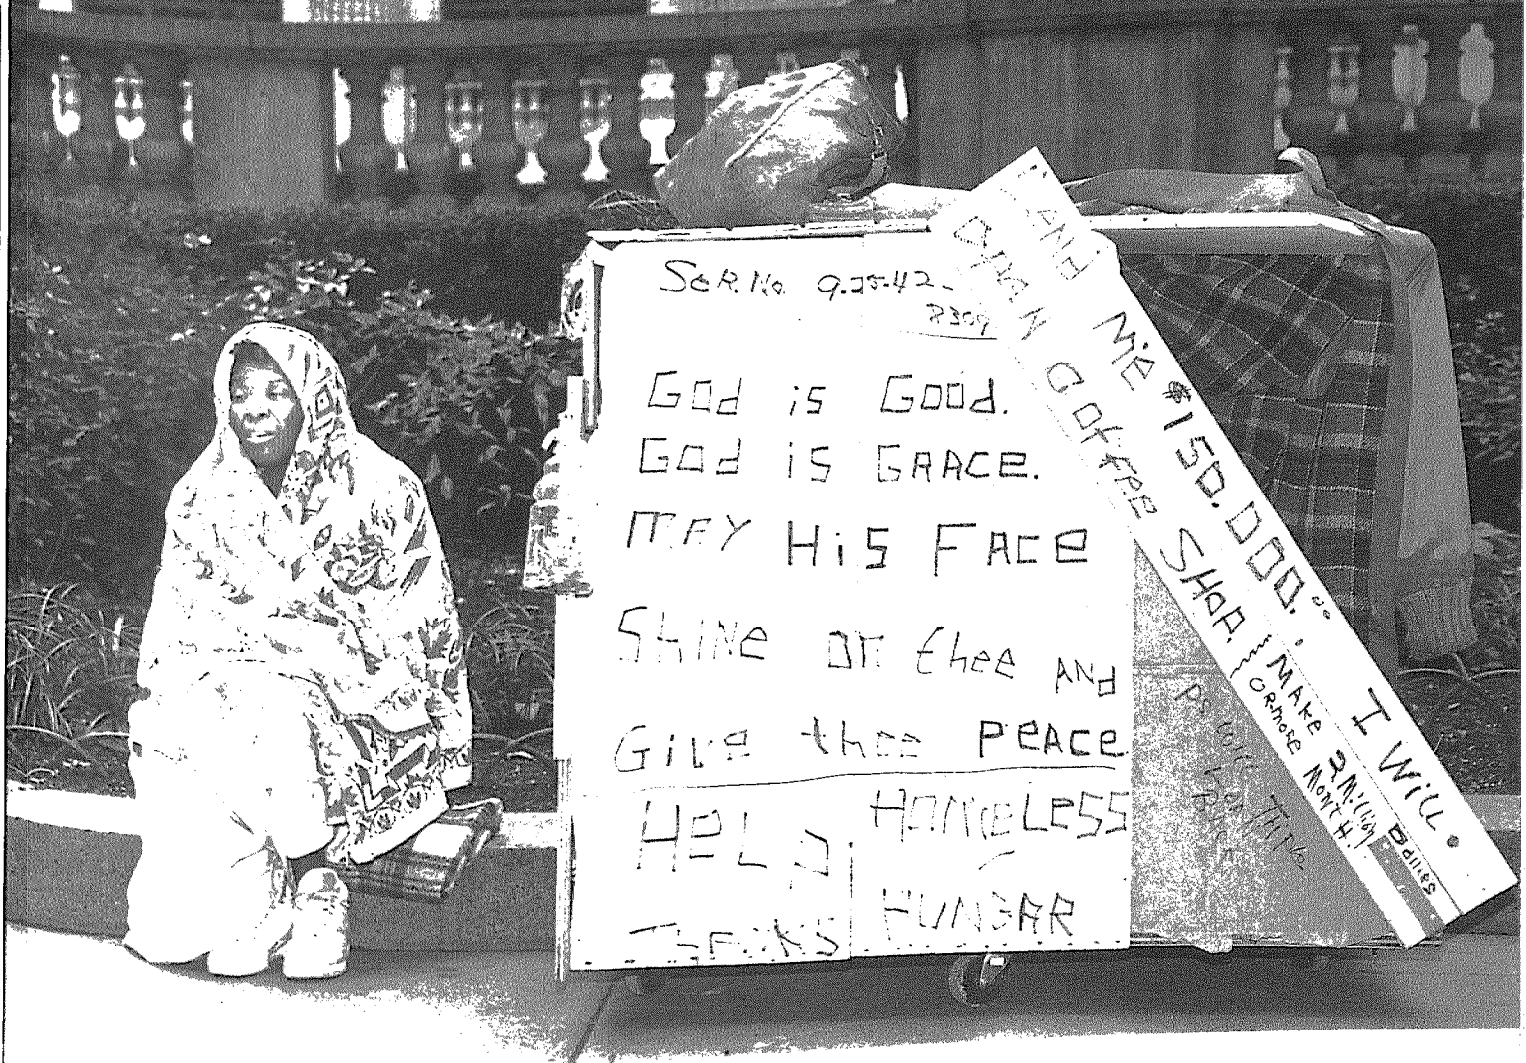 SeR. No. 9.25.42-
8309
God is Good.
God is GRACe.
MAY HiS FACe
SHiNe ON thee AND
Give thee PeACe
HeLP. HOMeLeSS
HUNGAR
THANKS
Me $150.000. I WiLL.
OPAN COFFee SHOP.
MAKe 2 MilliON
ORMORe MONTH.